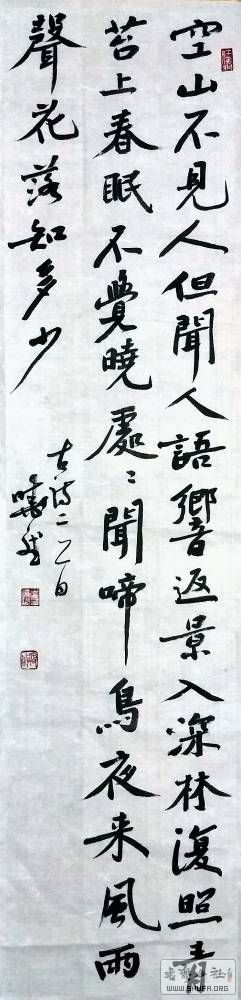 空山不見人但聞人語響返景入深林復照青
苔上春眠不覺曉處〻聞啼鳥夜来風雨
聲花落知多少
古诗二首
書法公社
WWW.SHUFA.ORG